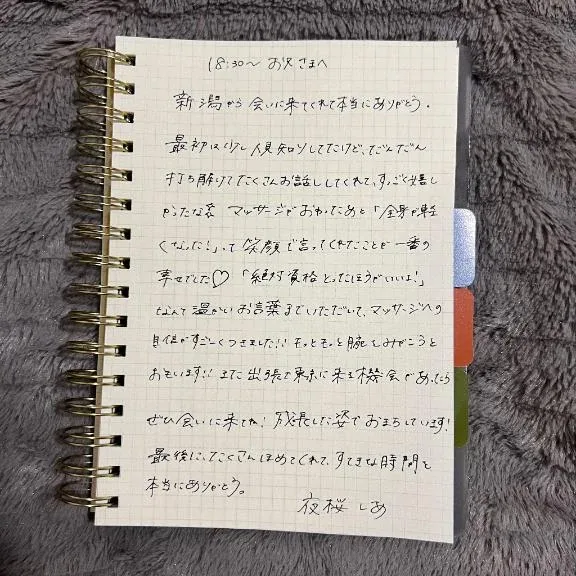 18:30〜 お兄さまへ
新潟から会いに来てくれて本当にありがとう。
最初は少し人見知りしてたけど、だんだん
打ち解けてたくさんお話ししてくれて、すっごく嬉し
かったな マッサージがおわったあと「全身が軽
くなった!」って笑顔で言ってくれたことが一番の
幸せでした♡ 「絶対資格とったほうがいいよ!」
なんて温かいお言葉までいただいて、マッサージへの
自信がすごくつきました!! もっともっと腕をみがこうと
おもいます!! また出張で東京に来る機会があったら
ぜひ会いに来てね! 成長した姿でおまちしています!
最後に、たくさんほめてくれて、すてきな時間を
本当にありがとう。
夜桜 しあ